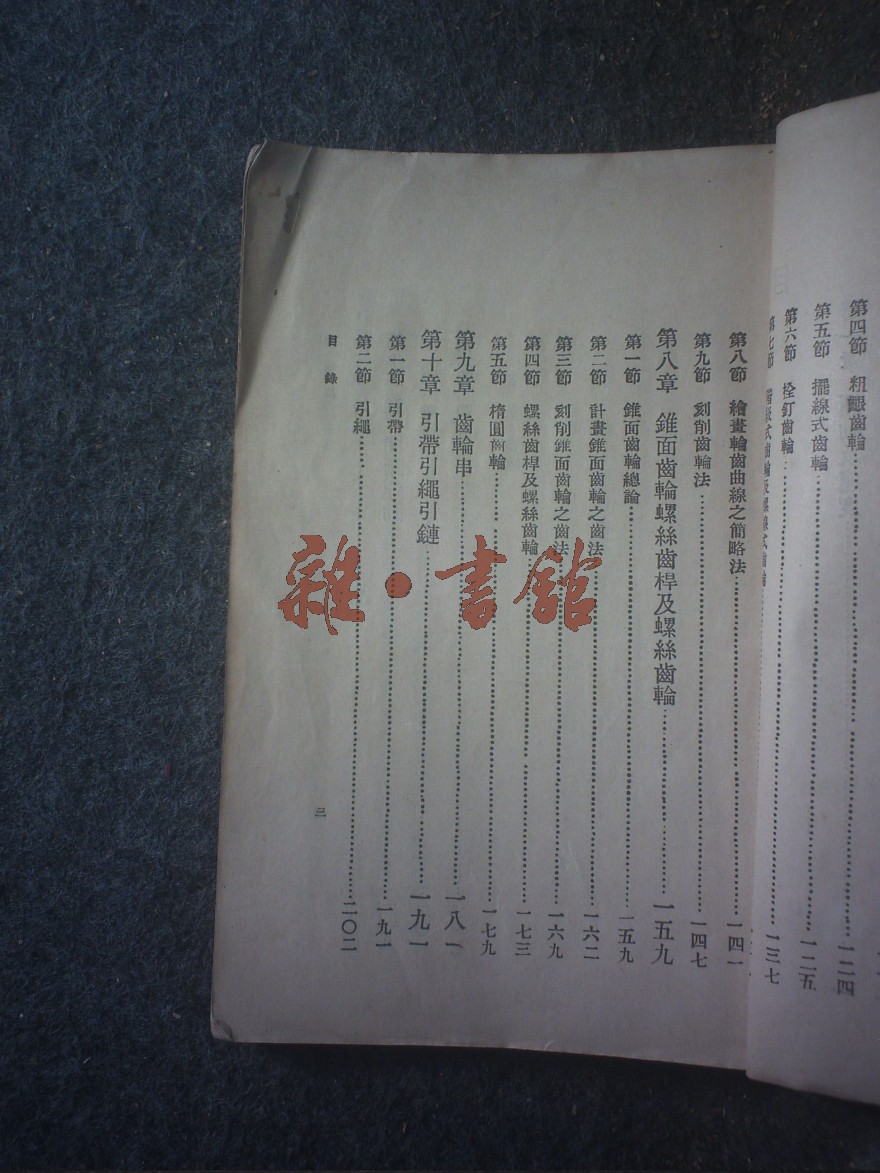 第四節 粗齦齒輪 一二四
第五節 擺線式齒輪 一二五
第六節 栓釘齒輪
第七節 式齒輪及螺線式齒輪 一三七
第八節 繪畫輪齒曲線之簡略法 一四一
第九節 刻削齒輪法 一四七
第八章 錐面齒輪螺絲齒桿及螺絲齒輪 一五九
第一節 錐面齒輪總論 一五九
第二節 計畫錐面齒輪之齒法 一六二
第三節 刻削錐面齒輪之齒法 一六九
第四節 螺絲齒桿及螺絲齒輪 一七三
第五節 橢圓齒輪 一七九
第九章 齒輪串 一八一
第十章 引帶引繩引鏈 一九一
第一節 引帶 一九一
第二節 引繩 二〇二
目錄
三
雜·書館